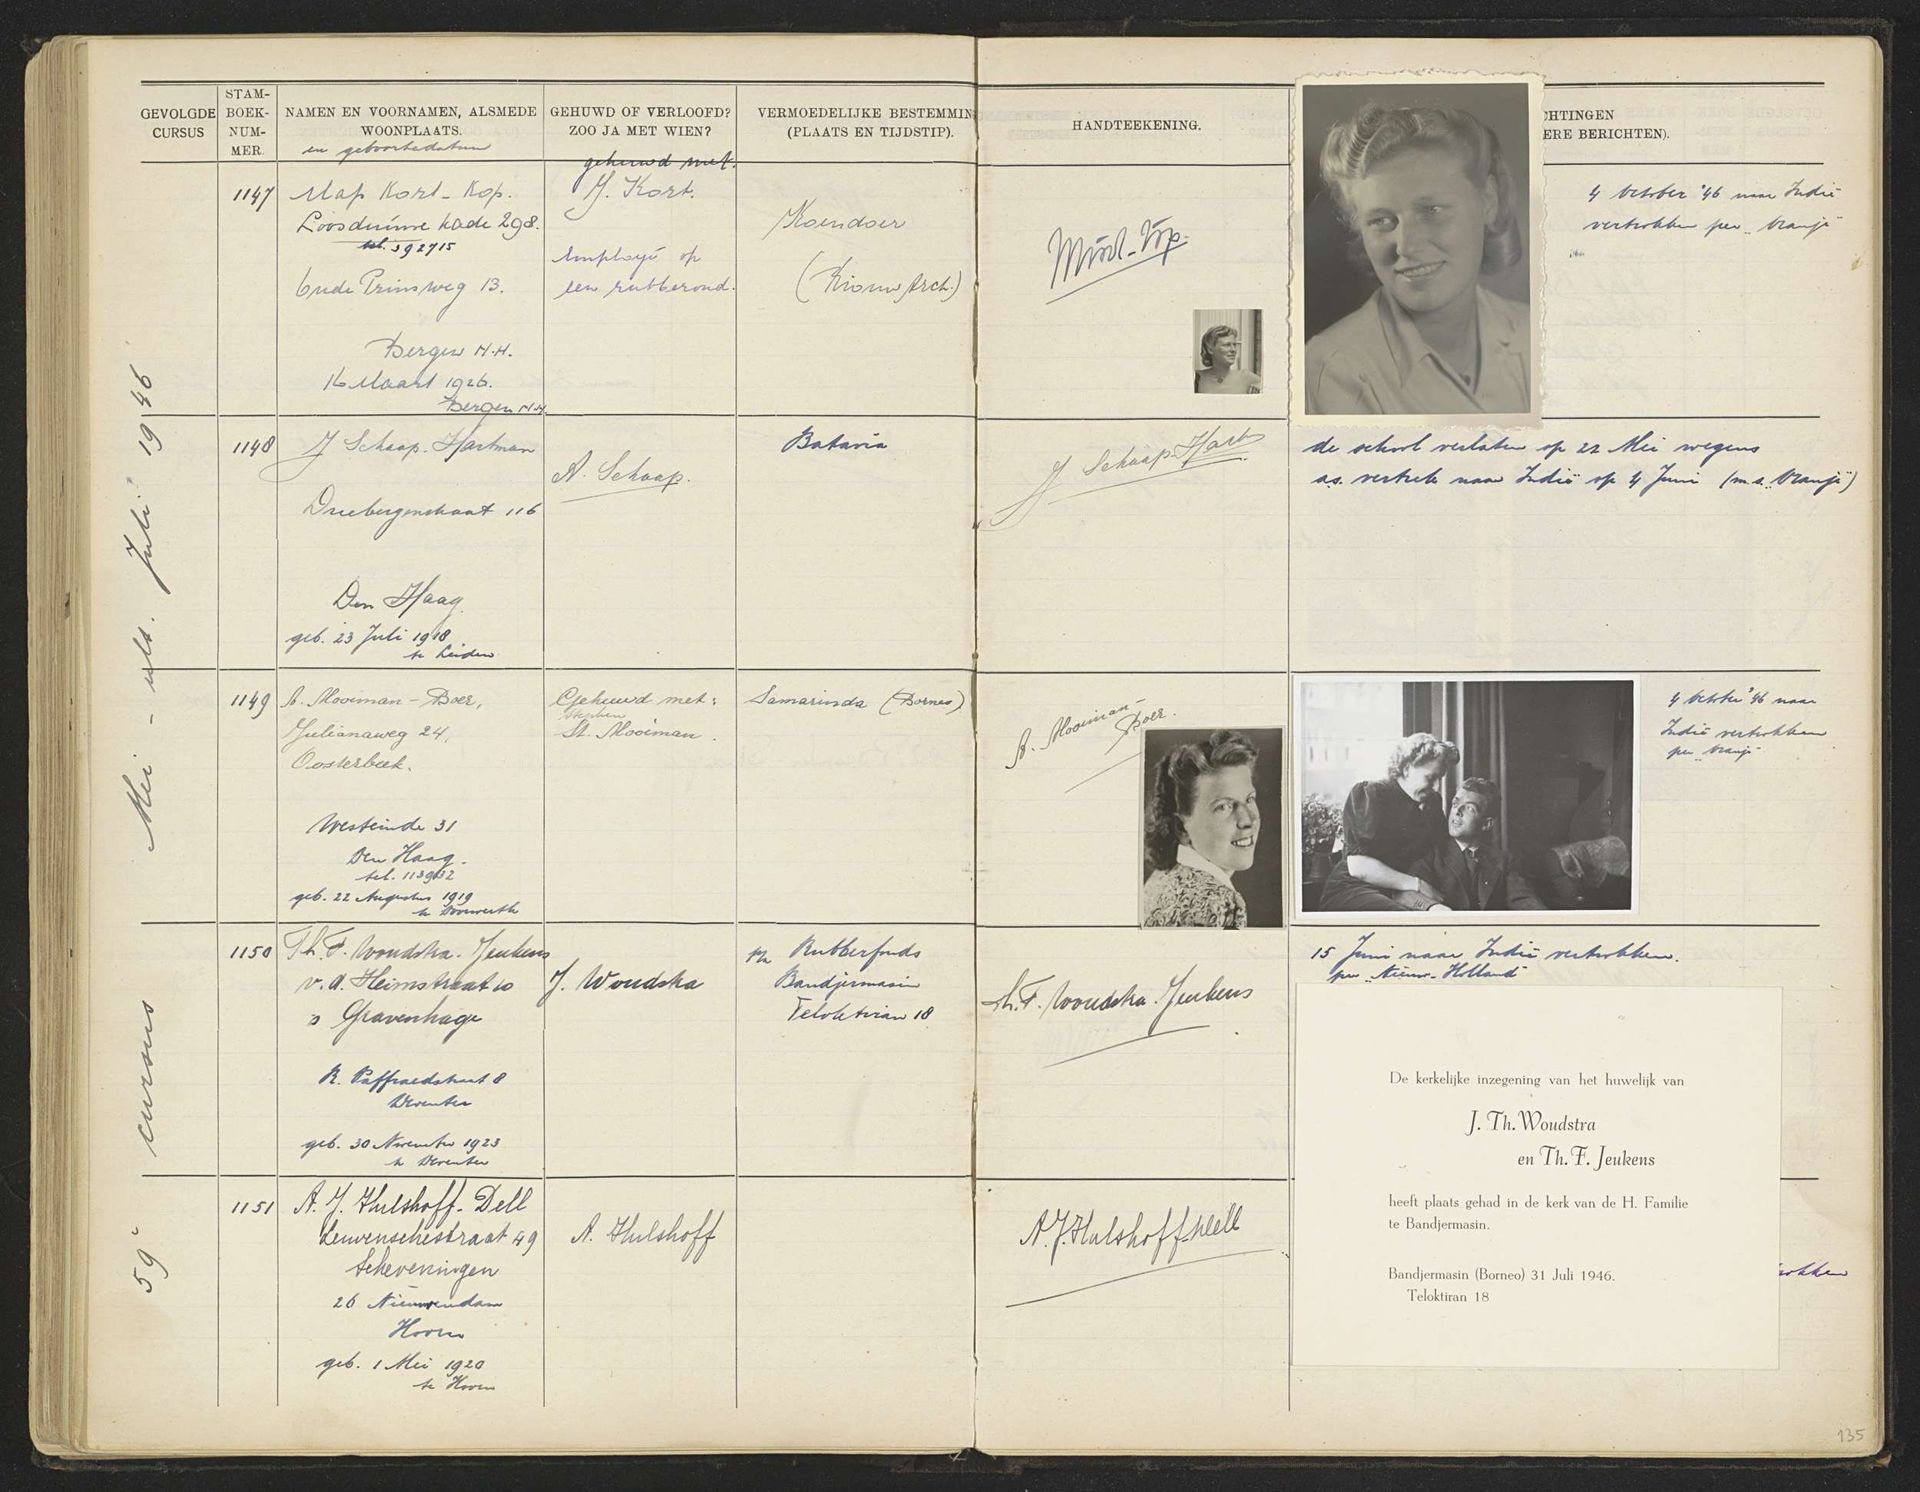 GEVOLGDE
CURSUS
STAM-
BOEK-
NUM-
MER.
NAMEN EN VOORNAMEN, ALSMEDE
WOONPLAATS.
en geboortedatum
GEHUWD OF VERLOOFD?
ZOO JA MET WIEN?
VERMOEDELIJKE BESTEMMIN
(PLAATS EN TIJDSTIP).
HANDTEEKENING.
CHTINGEN
ERE BERICHTEN).
59e cursus Mei - ult. Juli 1946
1147
Kort - Kop.
Loosduinse kade 298.
tel. 392715
Oude Prinsweg 13.
Bergen N.H.
16 Maart 1926.
Bergen N.H.
gehuwd met.
J. Kort.
employé op
een rubberond.
Koendoer
(Riouw Arch.)
4 October '46 naar Indië
vertrokken per "Oranje"
1148
J Schaap-Hartman
Driebergenstraat 116
Den Haag.
geb. 23 Juli 1918
te Leiden
A. Schaap.
Batavia
J Schaap-Hart
de school verlaten op 22 Mei wegens
a.s. vertrek naar Indië op 4 Juni (m.s. "Oranje")
1149
A. Mooiman - Boer,
Julianaweg 24,
Oosterbeek.
Westeinde 31
Den Haag.
tel. 113932
geb. 22 Augustus 1919
te Doorwerth
Gehuwd met:
Stephan
St. Mooiman.
Samarinda (Borneo)
A. Mooiman-
Boer.
4 October '46 naar
Indië vertrokken
per "Oranje"
1150
Th. F. Woudstra. Jeukens
v. d. Heimstraat 10
s Gravenhage
R. Paffraedstraat 8
Deventer
geb. 30 November 1923
te Deventer
J. Woudstra
Rubberfonds
Bandjermasin
Teloktiran 18
Th. F. Woudstra. Jeukens
15 Juni naar Indië vertrokken.
per "Nieuw-Holland"
De kerkelijke inzegening van het huwelijk van
J. Th. Woudstra
en Th. F. Jeukens
heeft plaats gehad in de kerk van de H. Familie
te Bandjermasin.
Bandjermasin (Borneo) 31 Juli 1946.
Teloktiran 18
1151
A. J. Hulshoff-Dell
Leuvenschestraat 49
Scheveningen
26 Nieuwendam
Hoorn
geb. 1 Mei 1920
te Hoorn
A. Hulshoff
A. J. Hulshoff Dell
okken
135